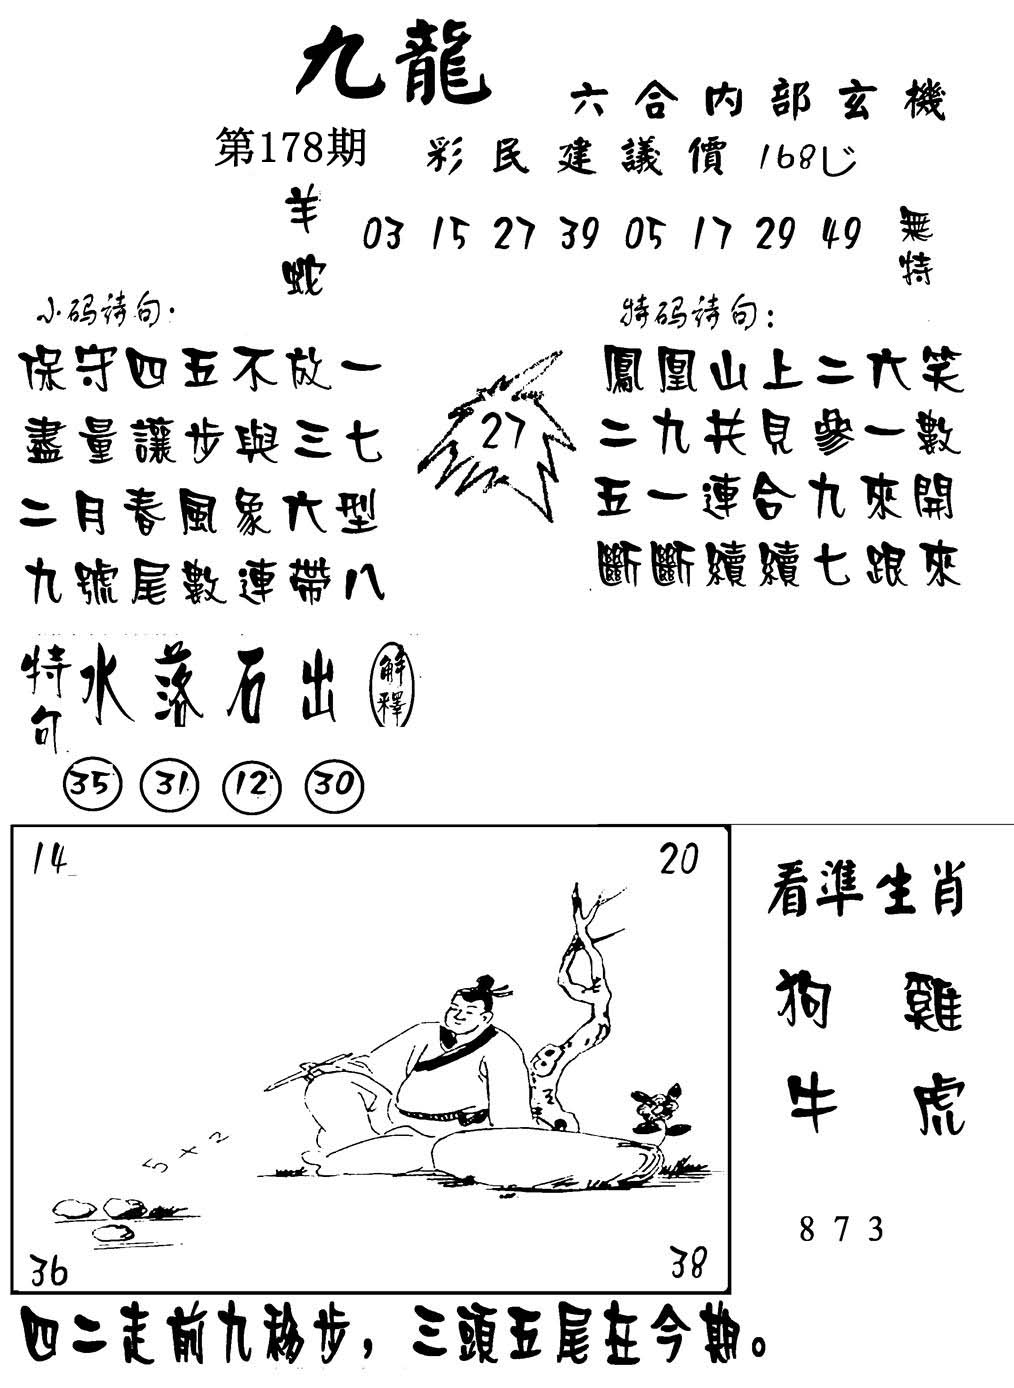 九龍
六合内部玄機
第178期
彩民建議價168じ
羊
蛇
03 15 27 39 05 17 29 49
無特
小码诗句·
保守四五不放一
盡量讓步與三七
二月春風象六型
九號尾數連帶八
27
特码诗句：
鳳凰山上二六笑
二九共見參一數
五一連合九來開
斷斷續續七跟來
特句
水落石出
解釋
35 31 12 30
14 20
5×2
36 38
看準生肖
狗 雞
牛 虎
8 7 3
四二走前九移步，三頭五尾在今期。